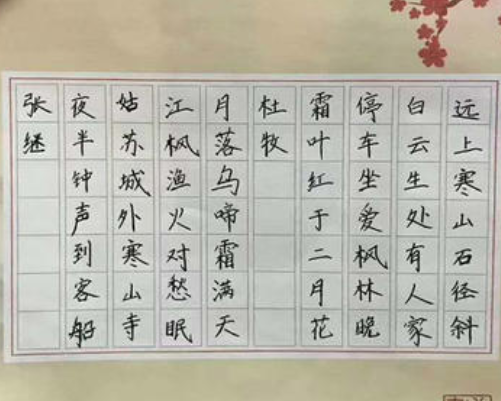 远上寒山石径斜
白云生处有人家
停车坐爱枫林晚
霜叶红于二月花
杜牧
月落乌啼霜满天
江枫渔火对愁眠
姑苏城外寒山寺
夜半钟声到客船
张继